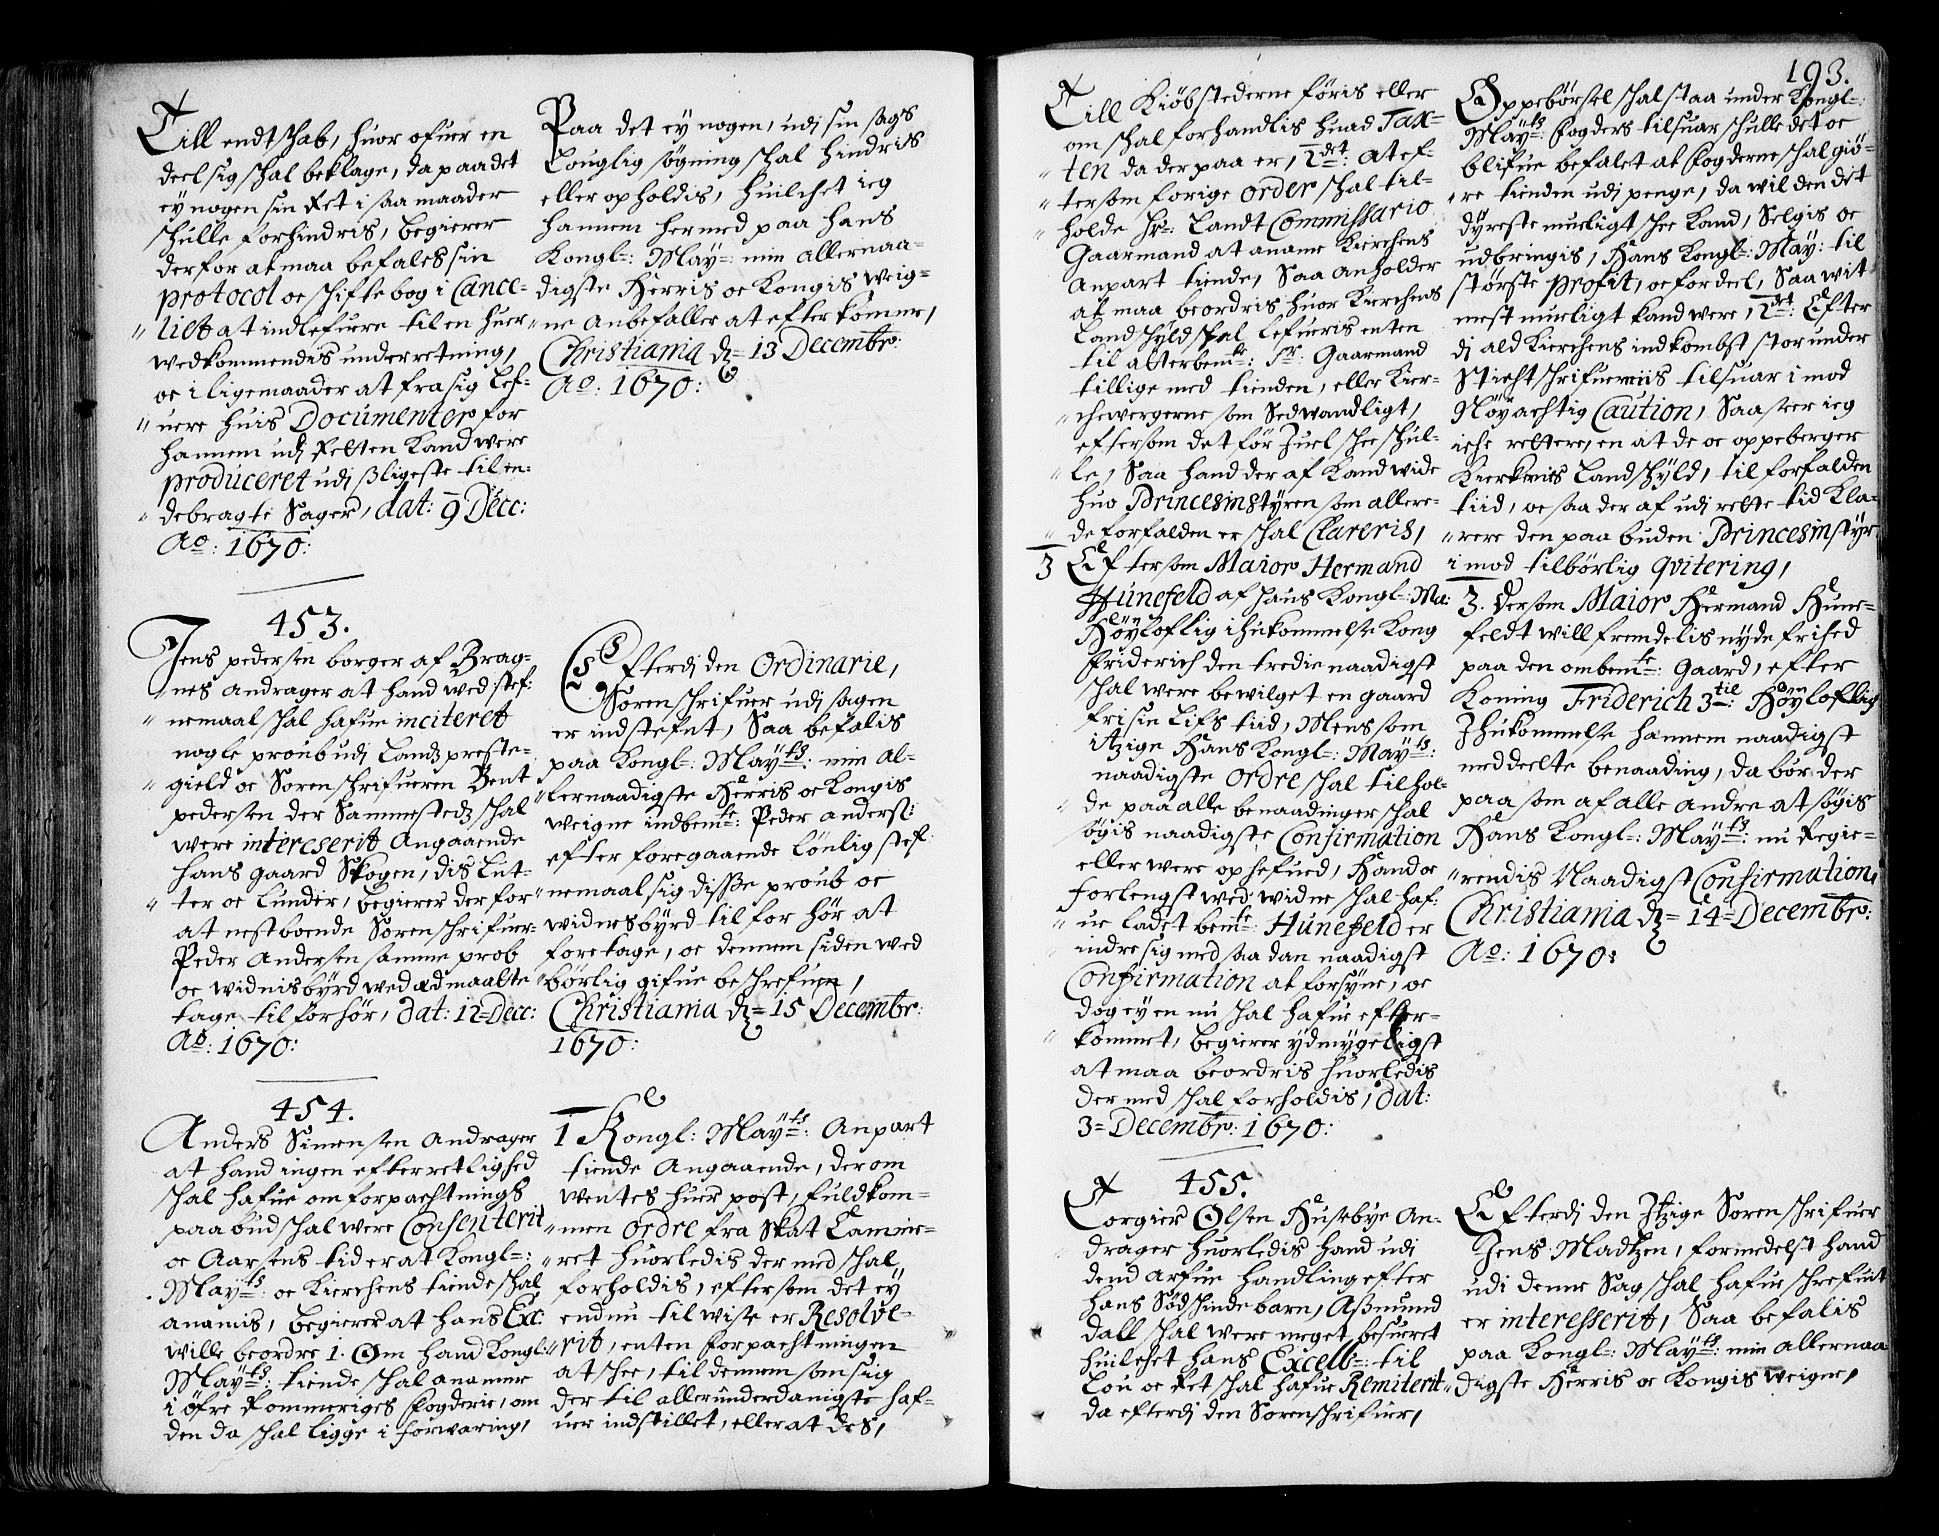 Till endtschab, huor ofuer en
deel sig schal beklage, da paa det
ey nogen sin Ret i saa maader
schulle forhindris, begierer
derfor at maa befales sin
protocol oc schiftebog i Cance-
"liet at indlefuere til en huer
wedkommendis underretning,
oc i ligemaader at fra sig lef-
"uere huis Documenter for
hannem udj Retten kand were
produceret udi ßligeste til en-
"debragte Sager, dat: 9 Dec:
Ao: 1670:
Paa det ey nogen, udj sin sags
Louglig søgning schal hindris
eller opholdis, huilchet ieg
hannem hermed paa hans
Kongl: May: min allernaa-
digste Herris oc Kongis weig-
"ne anbefaller at efterkomme,
Christiania dz 13 Decembr:
Ao: 1670:
453.
Jens pedersen borger af Brag-
"nes andrager at hand wed stef:
"nemaal schal hafue inciteret
nogle proub udj Landz preste-
"gield oc Sorenschrifueren Bent
pedersen der sammestedz schal
were interserit angaaende
hans gaard Skogen, dis Lut-
"ter oc Lunder, begierer derfor
at nestboende Sorenschrifuer
Peder Andersen samme prob
oc widnisbyrd wed ædmaalte
tage til forhør, dat: 12 Decc:
Ao: 1670:
Efterdj den Ordinarie,
Sorenschrifuer udj sagen
er indstefnt, Saa befalis
paa Kongl: Mayts: min al-
"lernaadigste Herris oc Kongis
weigne indbemte: Peder anders:
efter foregaaende Lønlig stef-
"nemaal sig disse proub oc
widersbyrd til forhør at
foretage, oc dennem siden wed
"børlig gifue beschrefuen,
Christiania dz 15 Decembr:
1670:
454.
Anders Simensen andrager
at hand ingen efterretlighed
schal hafue om forpachtnings
paabud schal were Consenterit
oc Aarsens tid er at Kongl:
Mayts: oc Kierchens tiende schal
anamis, begierer at hans Exc:
wille beordre 1. Om hand Kongl:
Mayts: tiende schal anamme
i øfre Rommeriges Fogderie, om
den da schal ligge i forwaring,
1 Kongl: Mayts: Anpart
tiende Angaaende, derom
wentes huer post, fuldkom-
"men ordre fra Skat Camme-
"ret huorledis dermed schal
forholdis, eftersom det ey
endnu til wise er Resolve-
"rit, enten forpachtningen
at schee, til dennem som sig
der til allerunderdanigste haf-
uer indstillet, eller at des,
193.
Till Kiöbstederne føris eller
om schal forhandlis huad Tax-
"ten da derpaa er, 2det: at ef-
"tersom forige order schal til-
"holde Hr: Landt Commissario
Gaarmand at aname Kierchens
Anpart tiende, Saa anholder
at maa beordris huor Kierchens
Landschyld schal lefueris enten
til atterbemte: Hr: Gaarmand
tillige med tienden, eller Kier-
"chewergerne som Sedwandligt,
eftersom det før Juel schee schul-
"le, Saa hand der af kand wide
huo Princesinstyren som allere-
"de forfalden er schal Clareris,
3 Eftersom Maior Hermand
Hünefeld af hans Kongl: Ma:
Høylofflig ihukommelse Kong
friderich den tredie naadigst
schal were bewilget en gaard
frisin Lifs tiid, Mens som
itzige Hans Kongl: Mayts:
naadigste Ordre schal tilhol-
"de paa alle benaadinger schal
søgis naadigste Confirmation
eller were ophefued, Hand oc
forlengst wed widne schal haf-
"ue ladet bemte: Hünefeld er
indre sig med saadan naadigst
Confirmation at forsyne, oc
dog ey en nu schal hafue efter-
"kommet, begierer ydmygeligst
at maa beordris huorledis
dermed schal forholdis, dat:
3 Decembr: 1670:
Oppebörsel schal staa under Kongl:
Mayts: Fogders tilsuar schulle det oc
blifue befalet at Fogderne schal giö-
"re tienden udj penge, da wil den det
dyreste mueligt schee kand, Selgis oc
udbringis, Hans Kongl: May: til
störste profit, oc fordeel, Saa wit
mest mueligt kand were, 2det: Efter
di ald Kierchens indkombst stor under
Sticht schrifuernis tilsuar i mod
Nöyachtig Caution, Saa seer ieg
iche rettere, en at de oc oppeberger
Kierkenes Landschyld, til forfalden
tiid, oc saa der af udj rette tid Kla-
"rere den paa buden Princesinstyr
i mod tilbørlig qvitering,
3. Dersom Maior Hermand Hune-
feldt will fremdelis nyde frihed
paa den ombemte: Gaard, efter
Koning Friderich 3til: Høylofflig
Ihukommelse hannem naadigst
meddeelte benaading, da bør der
paa som af alle andre at søgis
Hans Kongl: Mayts: nu Regie-
"rendis Naadigst Confirmation,
Christiania dz 14 Decembr:
Ao: 1670:
455.
Torgier Olsen Husebye An-
drager huorledis hand udi
dend arfue handling efter
hans Södschindebarn, Aßmund
dall schal were meget besueret
huilchet hans Excell: til
Lou oc Ret schal hafue Remiterit
da efterdj den Sorenschrifuer,
Efterdj den Itzige Sorenschrifuer
Jens Madtzen, formedelst hand
udi denne Sag schal hafue schrefuit
er interesserit, Saa befalis
paa Kongl: Mayts: min allernaa
"digste Herris oc Kongis weigne,